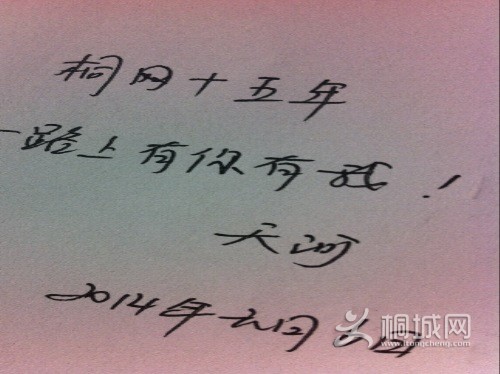 桐网十五年
一路上有你有我！
天河
2014年元月六日
桐城网
www.itongcheng.com